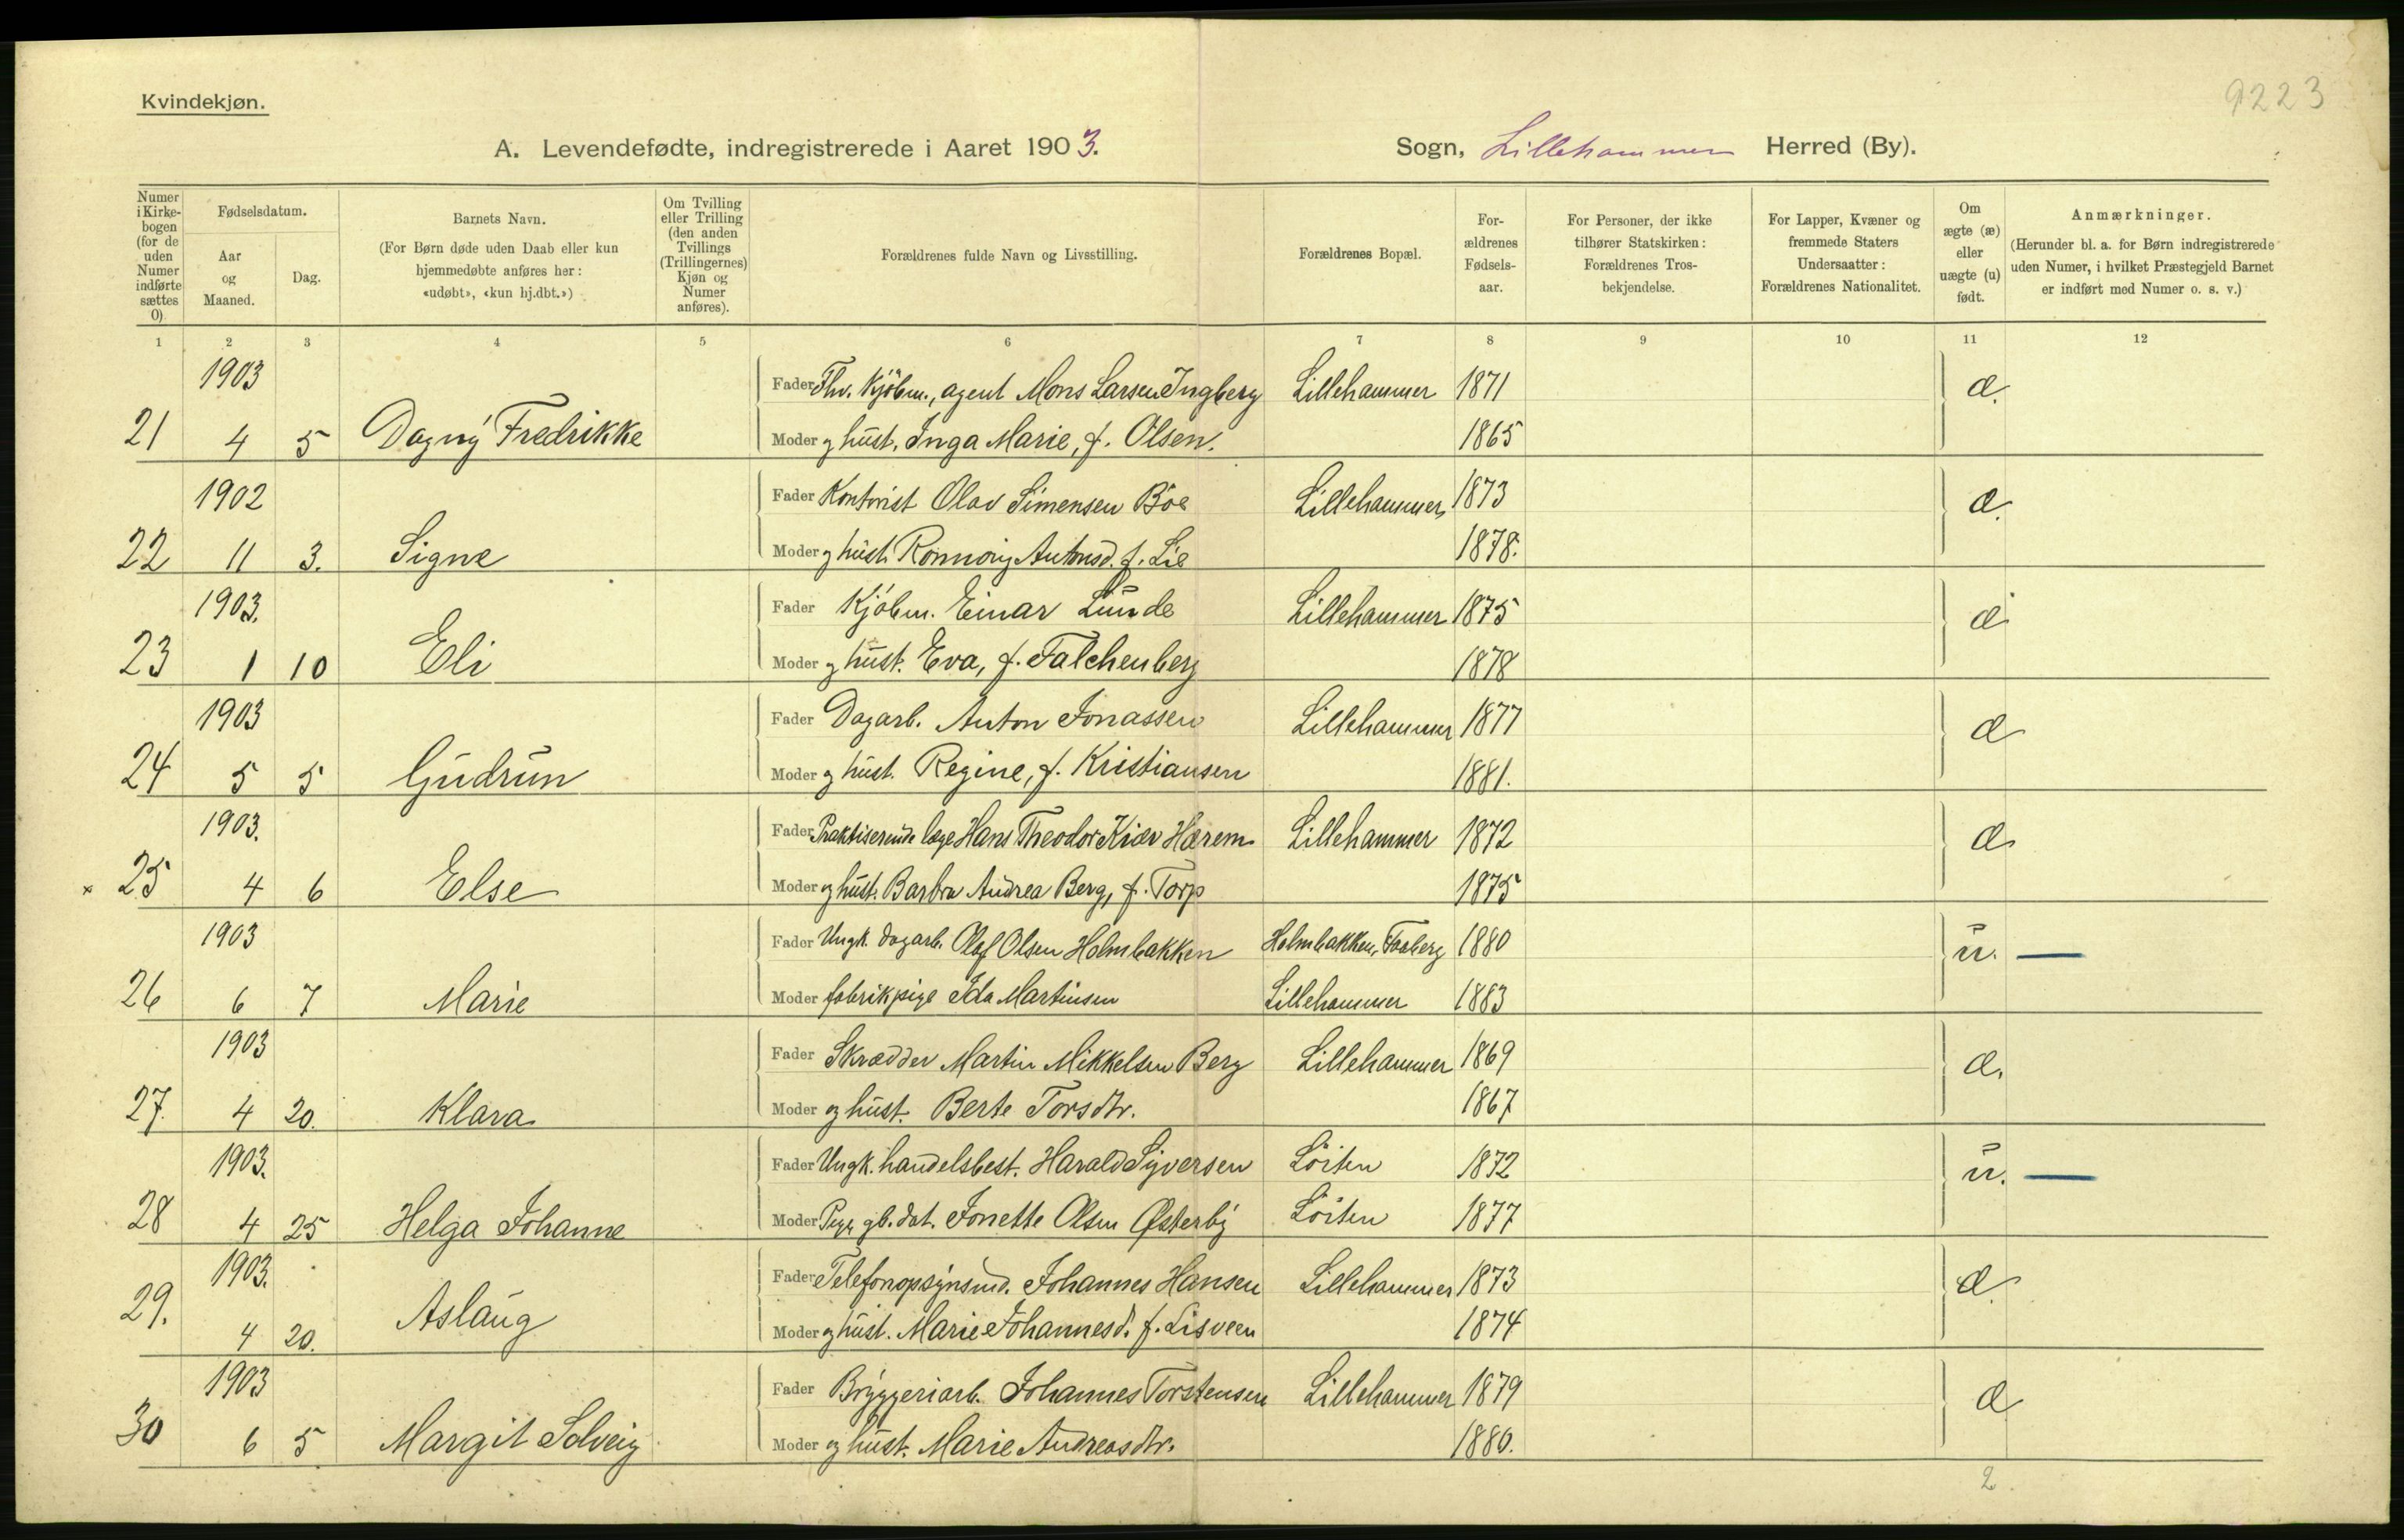 9223
Kvindekjøn.
A. Levendefødte, indregistrerede i Aaret 1903. Sogn, Lillehammer Herred (By).
Numer i Kirkebogen (for de uden Numer indførte sættes 0)
Fødselsdatum.
Aar og Maaned.
Dag.
Barnets Navn.
(For Børn døde uden Daab eller kun hjemmedøbte anføres her: «udøbt», «kun hj.dbt.»)
Om Tvilling eller Trilling (den anden Tvillings (Trillingernes) Kjøn og Numer anføres).
Forældrenes fulde Navn og Livsstilling.
Forældrenes Bopæl.
Forældrenes Fødselsaar.
For Personer, der ikke tilhører Statskirken: Forældrenes Trosbekjendelse.
For Lapper, Kvæner og fremmede Staters Undersaatter: Forældrenes Nationalitet.
Om ægte (æ) eller uægte (u) født.
Anmærkninger.
(Herunder bl. a. for Børn indregistrerede uden Numer, i hvilket Præstegjeld Barnet er indført med Numer o. s. v.)
1 2 3 4 5 6 7 8 9 10 11 12
1903 Fader Fhv. Kjöbm., agent Mons Larsen Ingberg Lillehammer 1871 æ.
21 4 5 Dagny Fredrikke Moder og hust. Inga Marie, f. Olsen. 1865
1902 Fader Kontorist Olav Simensen Böe Lillehammer 1873 æ.
22 11 3. Signe Moder og hust. Rönnoug Antonsd. f. Lie 1878.
1903. Fader Kjöbm. Einar Lunde Lillehammer 1875 æ
23 1 10 Eli Moder og hust. Eva, f. Falchenberg 1878
1903 Fader Dagarb. Anton Jonassen Lillehammer 1877 æ
24 5 5 Gudrun Moder og hust. Regine, f. Kristiansen 1881.
1903. Fader Praktiserende læge Hans Theodor Kiær Harem Lillehammer 1872 æ
× 25 4 6 Else Moder og hust. Barbra Andrea Berg, f. Torp 1875
1903 Fader Ungk. dagarb. Olaf Olsen Holmbakken Holmbakken, Faaberg 1880 u. —
26 6 7 Marie Moder fabrikpige Ida Martinsen Lillehammer 1883
1903 Fader Skrædder Martin Mikkelsen Berg Lillehammer 1869 æ.
27. 4 20. Klara Moder og hust. Berte Torsdtr. 1867
1903. Fader Ungk. handelsbest. Harald Syversen Löiten 1872 u. —
28 4 25 Helga Johanne Moder Pige, gb.dat. Jonette Olsen Østerby Löiten 1877
1903. Fader Telefonopsynsmd. Johannes Hansen Lillehammer 1873 æ.
29. 4 20. Aslaug Moder og hust. Marie Johannesd. f. Lisveen 1874
1903 Fader Bryggeriarb. Johannes Torstensen Lillehammer 1879 æ
30 6 5 Margit Solveig Moder og hust. Marie Andreasdtr. 1880.
2